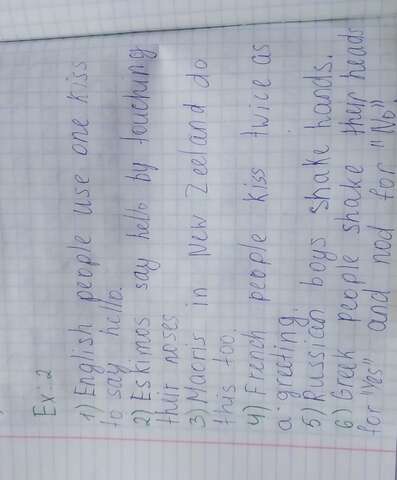 Ex: 2
1) English people use one kiss
to say hello.
2) Eskimos say hello by touching
their noses
3) Maoris in New Zeeland do
this too.
4) French people kiss twice as
a greeting.
5) Russian boys shake hands.
6) Greek people shake their heads
for "Yes" and nod for "No"